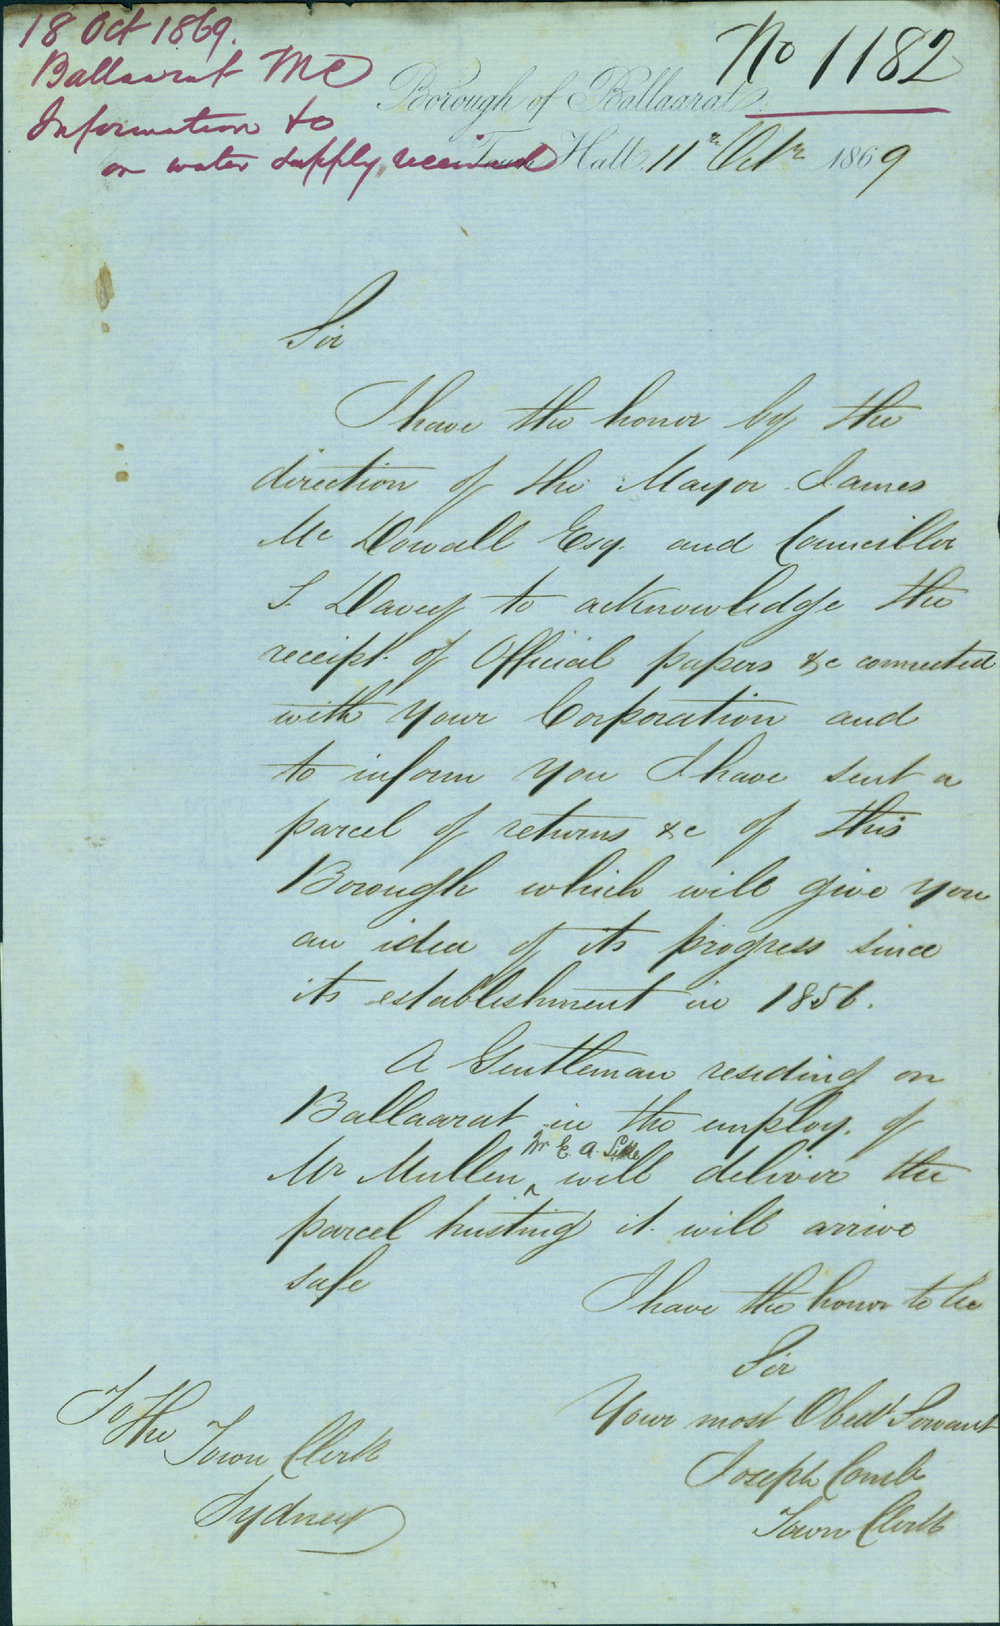 18 Oct 1869.
Ballaarat MC
Information to
on water supply received
No 1182
Borough of Ballaarat
Town Hall 11th Octr 1869
Sir
I have the honor by the
direction of the Mayor James
Mc Dowall Esq. and Councillor
S. Davey to acknowledge the
receipt of Official papers &c connected
with your Corporation and
to inform you I have sent a
parcel of returns &c of this
Borough which will give you
an idea of its progress since
its establishment in 1856.
A Gentleman residing on
Ballaarat in the employ. of
Mr E. A. Little
Mr Mullen ^ will deliver the
parcel trusting it will arrive
safe
I have the honor to be
Sir
Your most Obedt Servant
Joseph Comb
Town Clerk
To The
Town Clerk
Sydney